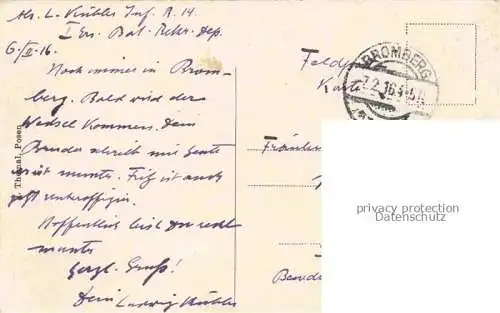 Abs. L. Kübler Inf. R. 14.
I Ers. Bat. Rekr. Dep.
6/II-16.
Noch immer in Brom-
berg. Bald wird der
Wechsel kommen. Dein
Bruder schreibt mir heute
er ist munter. Fritz ist auch
jetzt unteroffizier.
Hoffentlich bist Du recht
munter
Herzl. Gruß!
Dein Ludwig Kübler
Thomal, Posen.
Feldp.
Karte
BROMBERG
7.2.16
Fräulein
privacy protection
Datenschutz